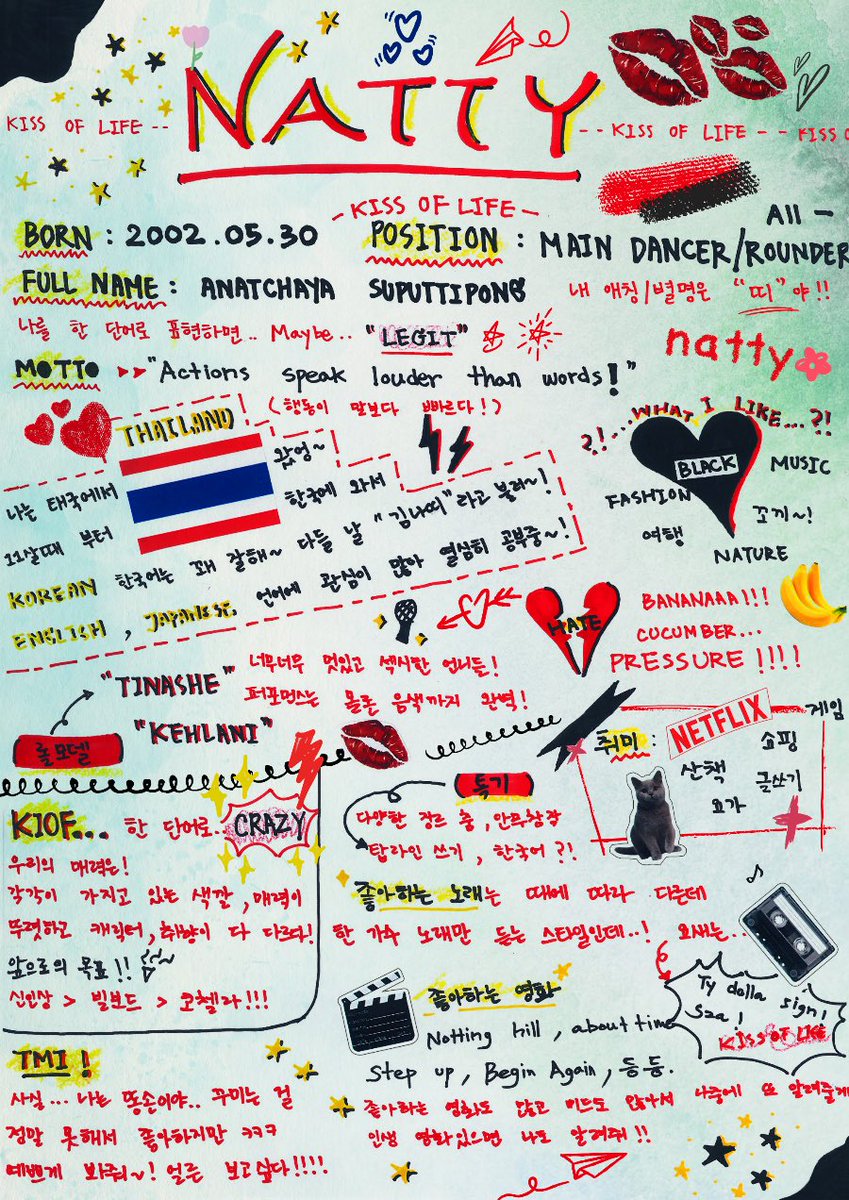 NATTY
KISS OF LIFE --
-- KISS OF LIFE -- KISS O
- KISS OF LIFE -
BORN : 2002.05.30
POSITION : All - MAIN DANCER/ROUNDER
FULL NAME : ANATCHAYA SUPUTTIPONG
내 애칭/별명은 "띠"야!!
나를 한 단어로 표현하면.. Maybe.. "LEGIT"
natty
MOTTO "Actions speak louder than words!"
(행동이 말보다 빠르다!)
THAILAND
나는 태국에서 왔엉~
11살때 부터 한국에 와서
KOREAN 한국어는 꽤 잘해~ 다들 날 "김나띠"라고 불러~!
ENGLISH, JAPANESE. 언어에 관심이 많아 열심히 공부중~!
?!...WHAT I LIKE....?!
BLACK
MUSIC
FASHION
꼬끼~!
여행
NATURE
HATE
BANANAAA!!!
CUCUMBER...
PRESSURE!!!!
롤모델
"TINASHE"
"KEHLANI"
너무너무 멋있고 섹시한 언니들!
퍼포먼스는 물론 음색까지 완벽!
취미 : NETFLIX 쇼핑 게임
산책 글쓰기
요가
KIOF... 한 단어로.. CRAZY
우리의 매력은!
각각이 가지고 있는 색깔, 매력이
뚜렷하고 캐릭터, 취향이 다 다르다!
앞으로의 목표!!
신인상 > 빌보드 > 코첼라!!!
특기
다양한 장르 춤, 안무창작
탑라인 쓰기, 한국어?!
좋아하는 노래는 때에 따라 다른데
한 가수 노래만 듣는 스타일인데..! 요새는...
Ty dolla sign!
Sza!
KISS OF LIFE
좋아하는 영화
Notting hill, about time
Step up, Begin Again, 등등.
좋아하는 영화도 많고 미드도 많아서 나중에 또 알려줄게
인생 영화있으면 나도 알려줘!!
TMI!
사실... 나는 똥손이야.. 꾸미는 걸
정말 못해서 좋아하지만 ㅋㅋㅋ
예쁘게 봐줘~! 얼른 보고싶다!!!!